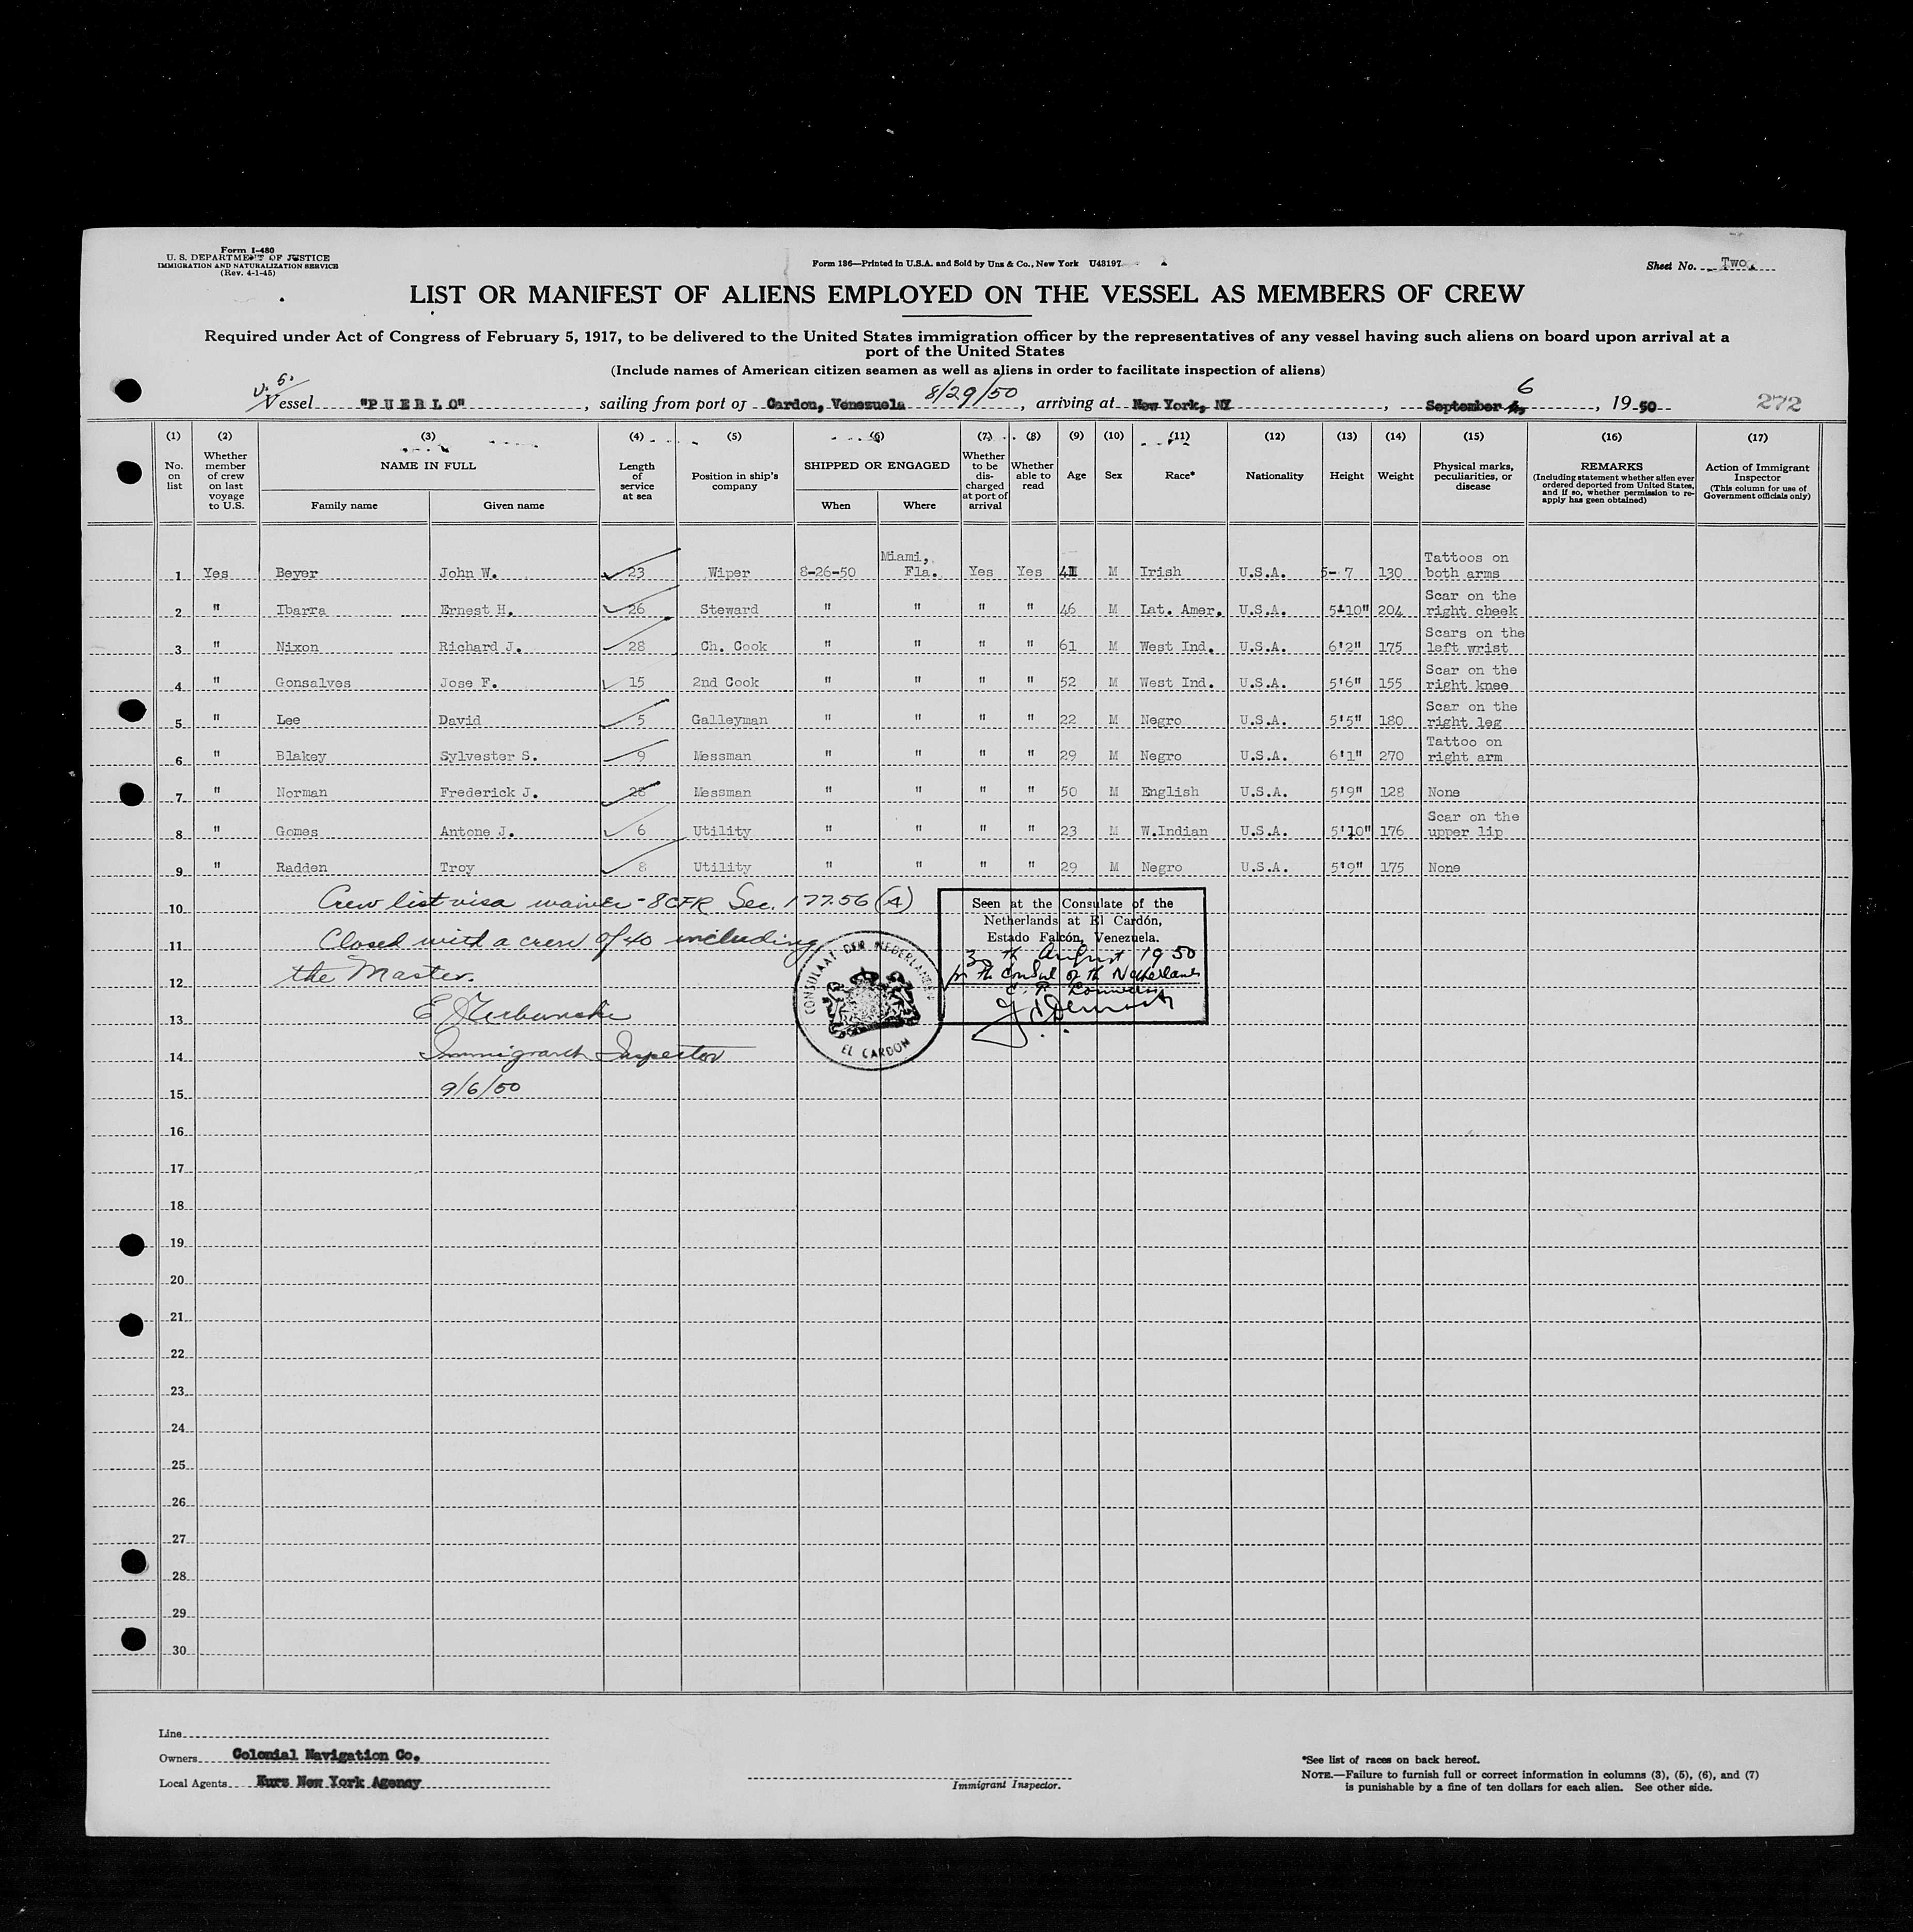 Form I-480
U. S. DEPARTMENT OF JUSTICE
IMMIGRATION AND NATURALIZATION SERVICE
(Rev. 4-1-45)
Form 136—Printed in U.S.A. and Sold by Unz & Co., New York U43197
Sheet No. Two.
LIST OR MANIFEST OF ALIENS EMPLOYED ON THE VESSEL AS MEMBERS OF CREW
Required under Act of Congress of February 5, 1917, to be delivered to the United States immigration officer by the representatives of any vessel having such aliens on board upon arrival at a
port of the United States
(Include names of American citizen seamen as well as aliens in order to facilitate inspection of aliens)
U.S. Vessel "PUEBLO", sailing from port of Cardon, Venezuela 8/29/50, arriving at New York, NY, September 6, 1950 272
(1) (2) (3) (4) (5) (6) (7) (8) (9) (10) (11) (12) (13) (14) (15) (16) (17)
No. on list
Whether member of crew on last voyage to U.S.
NAME IN FULL
Family name
Given name
Length of service at sea
Position in ship's company
SHIPPED OR ENGAGED
When
Where
Whether to be discharged at port of arrival
Whether able to read
Age
Sex
Race*
Nationality
Height
Weight
Physical marks, peculiarities, or disease
REMARKS
(Including statement whether alien ever ordered deported from United States, and if so, whether permission to re-apply has geen obtained)
Action of Immigrant Inspector
(This column for use of Government officials only)
1 Yes Beyer John W. 23 Wiper 8-26-50 Miami, Fla. Yes Yes 41 M Irish U.S.A. 5-7 130 Tattoos on both arms
2 " Ibarra Ernest H. 26 Steward " " " " 46 M Lat. Amer. U.S.A. 5'10" 204 Scar on the right cheek
3 " Nixon Richard J. 28 Ch. Cook " " " " 61 M West Ind. U.S.A. 6'2" 175 Scars on the left wrist
4 " Gonsalves Jose F. 15 2nd Cook " " " " 52 M West Ind. U.S.A. 5'6" 155 Scar on the right knee
5 " Lee David 5 Galleyman " " " " 22 M Negro U.S.A. 5'5" 180 Scar on the right leg
6 " Blakey Sylvester S. 9 Messman " " " " 29 M Negro U.S.A. 6'1" 270 Tattoo on right arm
7 " Norman Frederick J. 28 Messman " " " " 50 M English U.S.A. 5'9" 128 None
8 " Gomes Antone J. 6 Utility " " " " 23 M W.Indian U.S.A. 5'10" 176 Scar on the upper lip
9 " Radden Troy 8 Utility " " " " 29 M Negro U.S.A. 5'9" 175 None
10 Crew list visa waiver - 8 CFR Sec. 177.56 (A)
11 Closed with a crew of 40 including
12 the Master.
13
14 Immigrant Inspector
15 9/6/50
Seen at the Consulate of the
Netherlands at El Cardón,
Estado Falcón, Venezuela.
30th August 1950
for the Consul of the Netherlands
CONSULAAT DER NEDERLANDEN
EL CARDON
16
17
18
19
20
21
22
23
24
25
26
27
28
29
30
Line
Owners Colonial Navigation Co.
Local Agents Kurz New York Agency
Immigrant Inspector.
*See list of races on back hereof.
NOTE.—Failure to furnish full or correct information in columns (3), (5), (6), and (7)
is punishable by a fine of ten dollars for each alien. See other side.